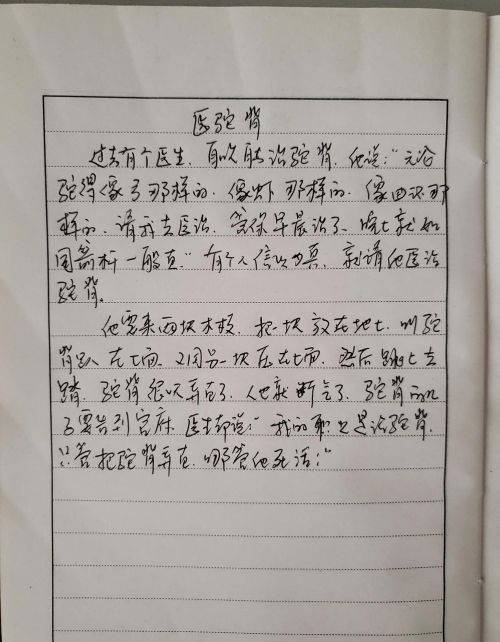 医驼背
过去有个医生，自吹能治驼背。他说："无论
驼得像弓那样的，像虾那样的，像曲尺那
样的，请我去医治，管保早晨治了，晚上就如
同箭杆一般直。"有个人信以为真，就请他医治
驼背。
他要来两块木板，把一块放在地上，叫驼
背趴在上面，又用另一块压在上面，然后跳上去
踏。驼背很快弄直了，人也就断气了。驼背的儿
子要告到官府，医生却说："我的职业是治驼背，
只管把驼背弄直，哪管他死活！"